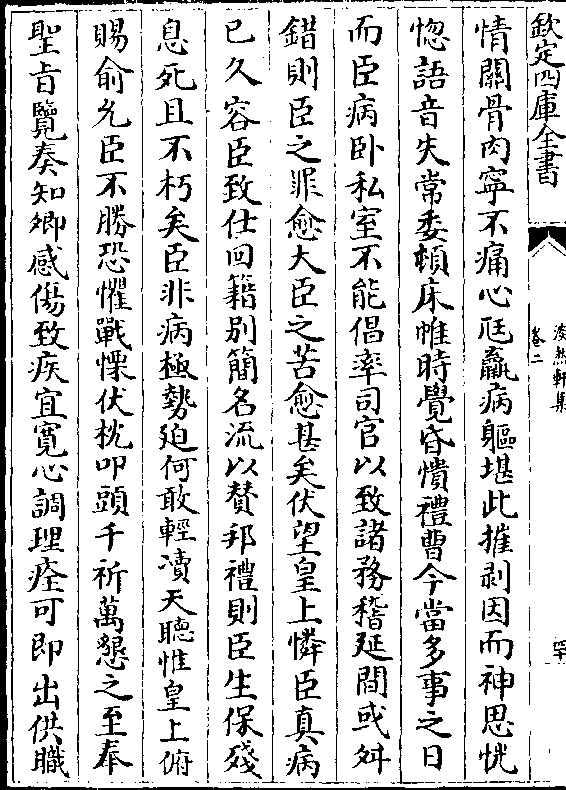 欽定四庫全書
卷二
情關骨肉寧不痛心尫羸病軀堪此摧剥因而神思恍
惚語音失常委頓床帷時覺昏憒禮曹今當多事之日
而臣病卧私室不能倡率司官以致諸務稽延間或舛
錯則臣之罪愈大臣之苦愈甚矣伏望皇上憐臣真病
已久容臣致仕回籍别簡名流以賛邦禮則臣生保殘
息死且不朽矣臣非病極勢廹何敢輕凟天聴惟皇上俯
賜俞允臣不勝恐懼戰慄伏枕叩頭千祈萬懇之至奉
聖旨覽奏知卿感傷致疾宜寛心調理痊可即出供職